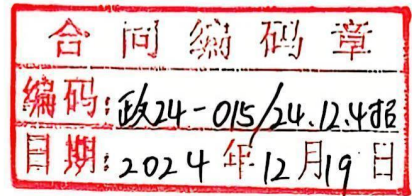 合同编码章
编码:政24-015/24.12.4招
日期:2024年12月19日